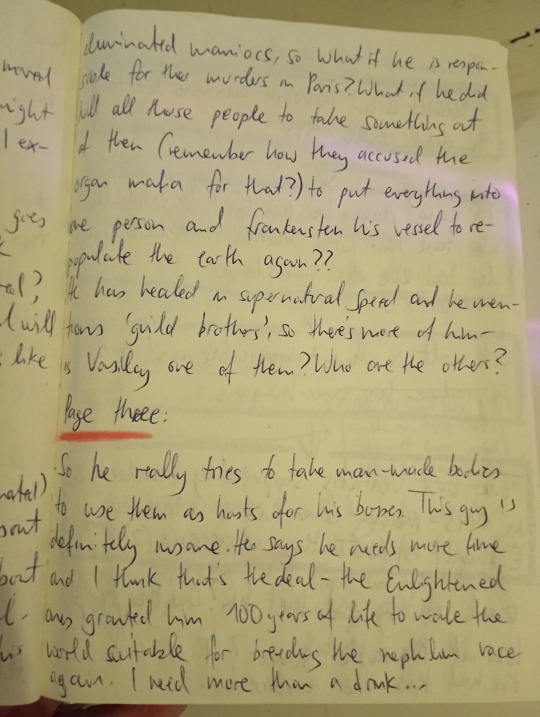 moral
night
I ex-
goes
al?
I will
like
nated)
bout
bout
l.
his
illuminated maniacs, so what if he is respon-
sible for the murders in Paris? What if he did
kill all those people to take something out
of them (remember how they accused the
organ mafia for that?) to put everything into
one person and frankenstein his vessel to re-
populate the earth again??
He has healed in supernatural speed and he men-
tions 'guild brothers', so there's more of him-
is Vasiley one of them? Who are the others?
Page three:
So he really tries to take man-made bodies
to use them as hosts for his bosses. This guy is
definitely insane. He says he needs more time
and I think that's the deal - the Enlightened
ones granted him 100 years of life to make the
world suitable for breeding the nephilim race
again. I need more than a drink...